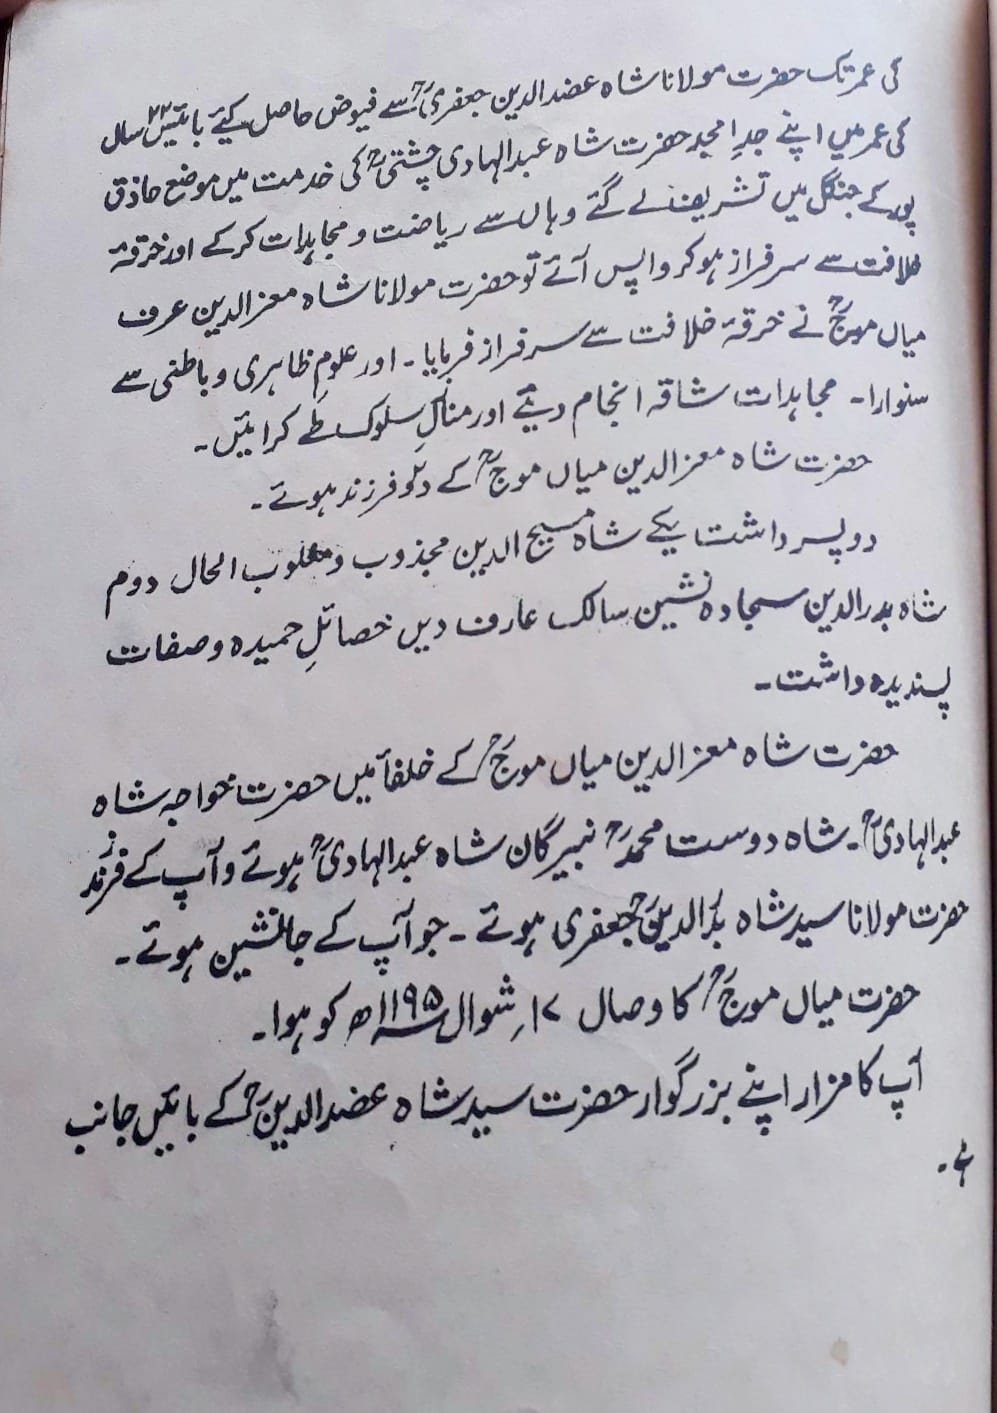 کی عمر تک حضرت مولانا شاہ عضد الدین جعفریؒ سے فیوض حاصل کیئے بائیس ۲۲ سال
کی عمر میں اپنے جدِ امجد حضرت شاہ عبدالہادی چشتیؒ کی خدمت میں موضع حاذق
پور کے جنگل میں تشریف لے گئے وہاں سے ریاضت و مجاہدات کرکے اور خرقۂ
خلافت سے سرفراز ہوکر واپس آئے تو حضرت مولانا شاہ معز الدین عرف
میاں موجؒ نے خرقۂ خلافت سے سرفراز فرمایا۔ اور علومِ ظاہری و باطنی سے
سنوارا۔ مجاہدات شاقہ انجام دیئے اور سلوک طے کرائیں۔
حضرت شاہ معز الدین میاں موجؒ کے دو فرزند ہوئے۔
دو پسر داشت یکے شاہ مسیح الدین مجذوب و مغلوب الحال دوم
شاہ بدر الدین سجادہ نشین سالک عارف دیں خصائلِ حمیدہ و صفات
پسندیدہ داشت۔
حضرت شاہ معز الدین میاں موجؒ کے خلفأ میں حضرت خواجہ شاہ
عبدالہادیؒ۔ شاہ دوست محمدؒ نبیرگان شاہ عبدالہادیؒ ہوئے و آپ کے فرزند
حضرت مولانا سید شاہ بدرالدینؒ جعفری ہوئے ۔ جو آپ کے جانشین ہوئے ۔
حضرت میاں موجؒ کا وصال ۱۷ شوال ۱۱۹۵ھ کو ہوا۔
آپ کا مزار اپنے بزرگوار حضرت سید شاہ عضد الدینؒ کے بائیں جانب
ہے۔